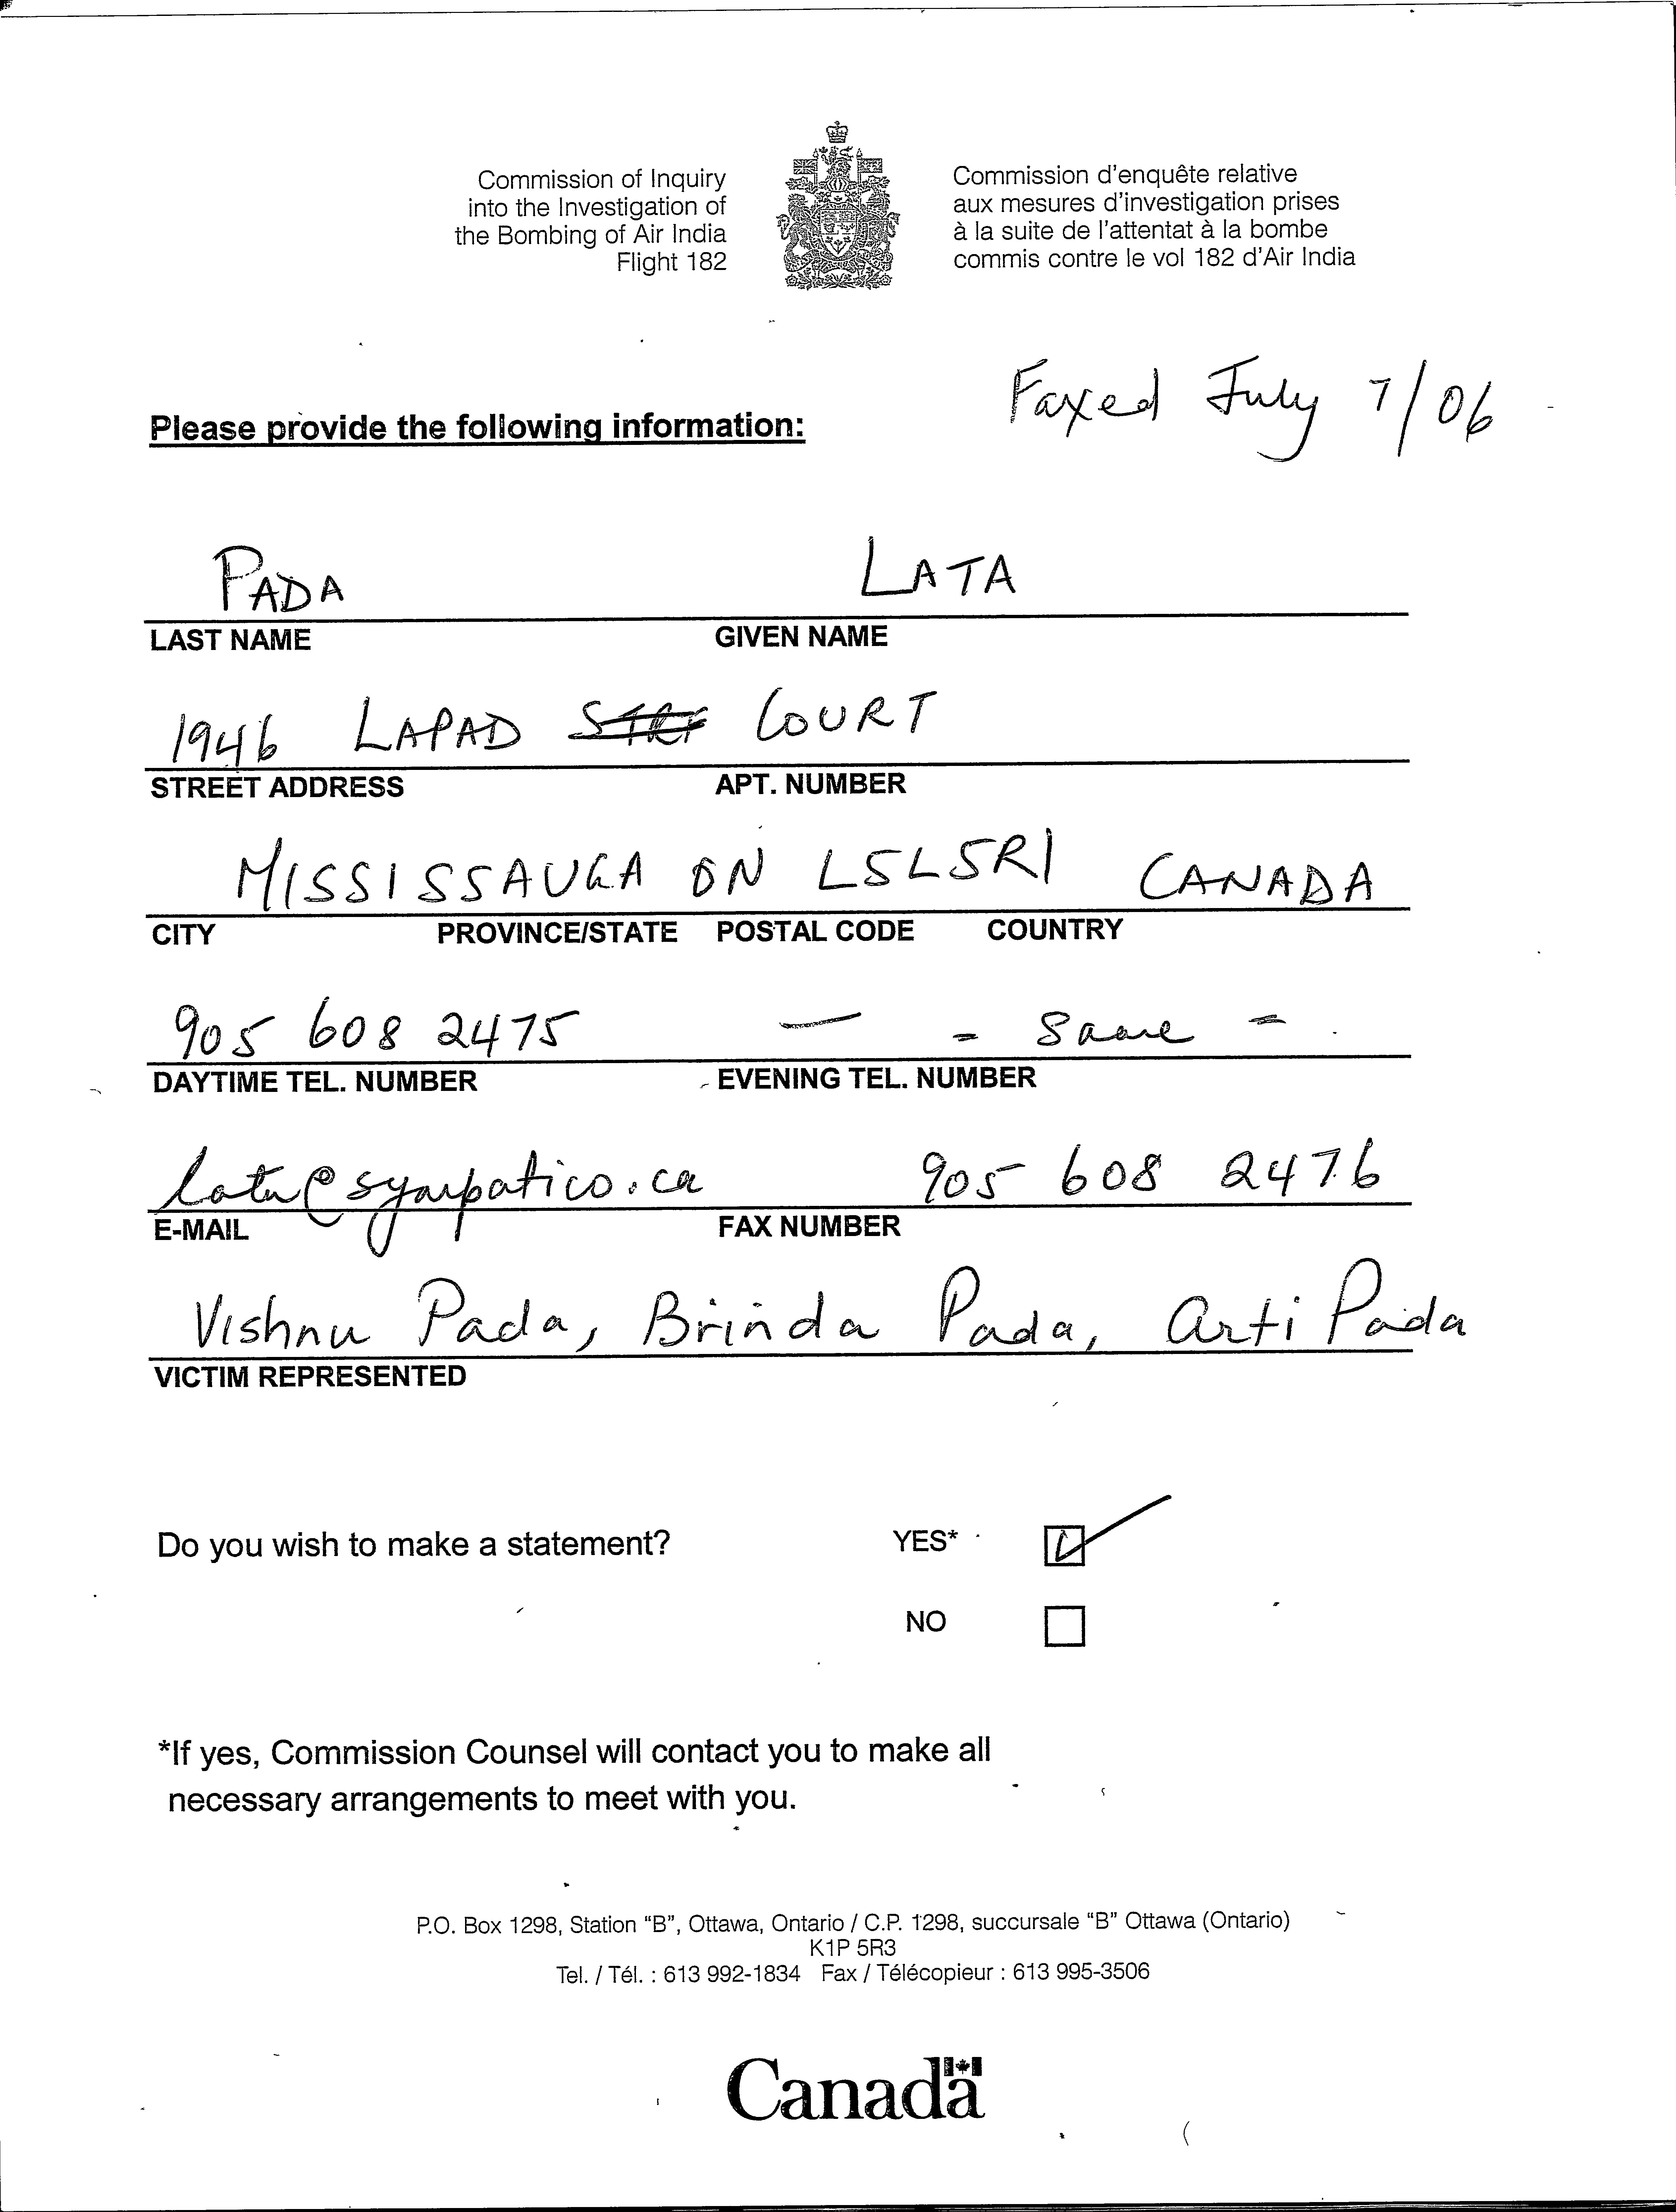 Commission of Inquiry
into the Investigation of
the Bombing of Air India
Flight 182
Commission d'enquête relative
aux mesures d'investigation prises
à la suite de l'attentat à la bombe
commis contre le vol 182 d'Air India
Faxed July 7/06
Please provide the following information:
PADA LATA
LAST NAME GIVEN NAME
1946 LAPAD COURT
STREET ADDRESS APT. NUMBER
MISSISSAUGA ON L5L5R1 CANADA
CITY PROVINCE/STATE POSTAL CODE COUNTRY
905 608 2475 — - Same -
DAYTIME TEL. NUMBER EVENING TEL. NUMBER
lata@sympatico.ca 905 608 2476
E-MAIL FAX NUMBER
Vishnu Pada, Brinda Pada, Arti Pada
VICTIM REPRESENTED
Do you wish to make a statement? YES*
NO
*If yes, Commission Counsel will contact you to make all
necessary arrangements to meet with you.
P.O. Box 1298, Station “B”, Ottawa, Ontario / C.P. 1298, succursale “B” Ottawa (Ontario)
K1P 5R3
Tel. / Tél. : 613 992-1834 Fax / Télécopieur : 613 995-3506
Canada